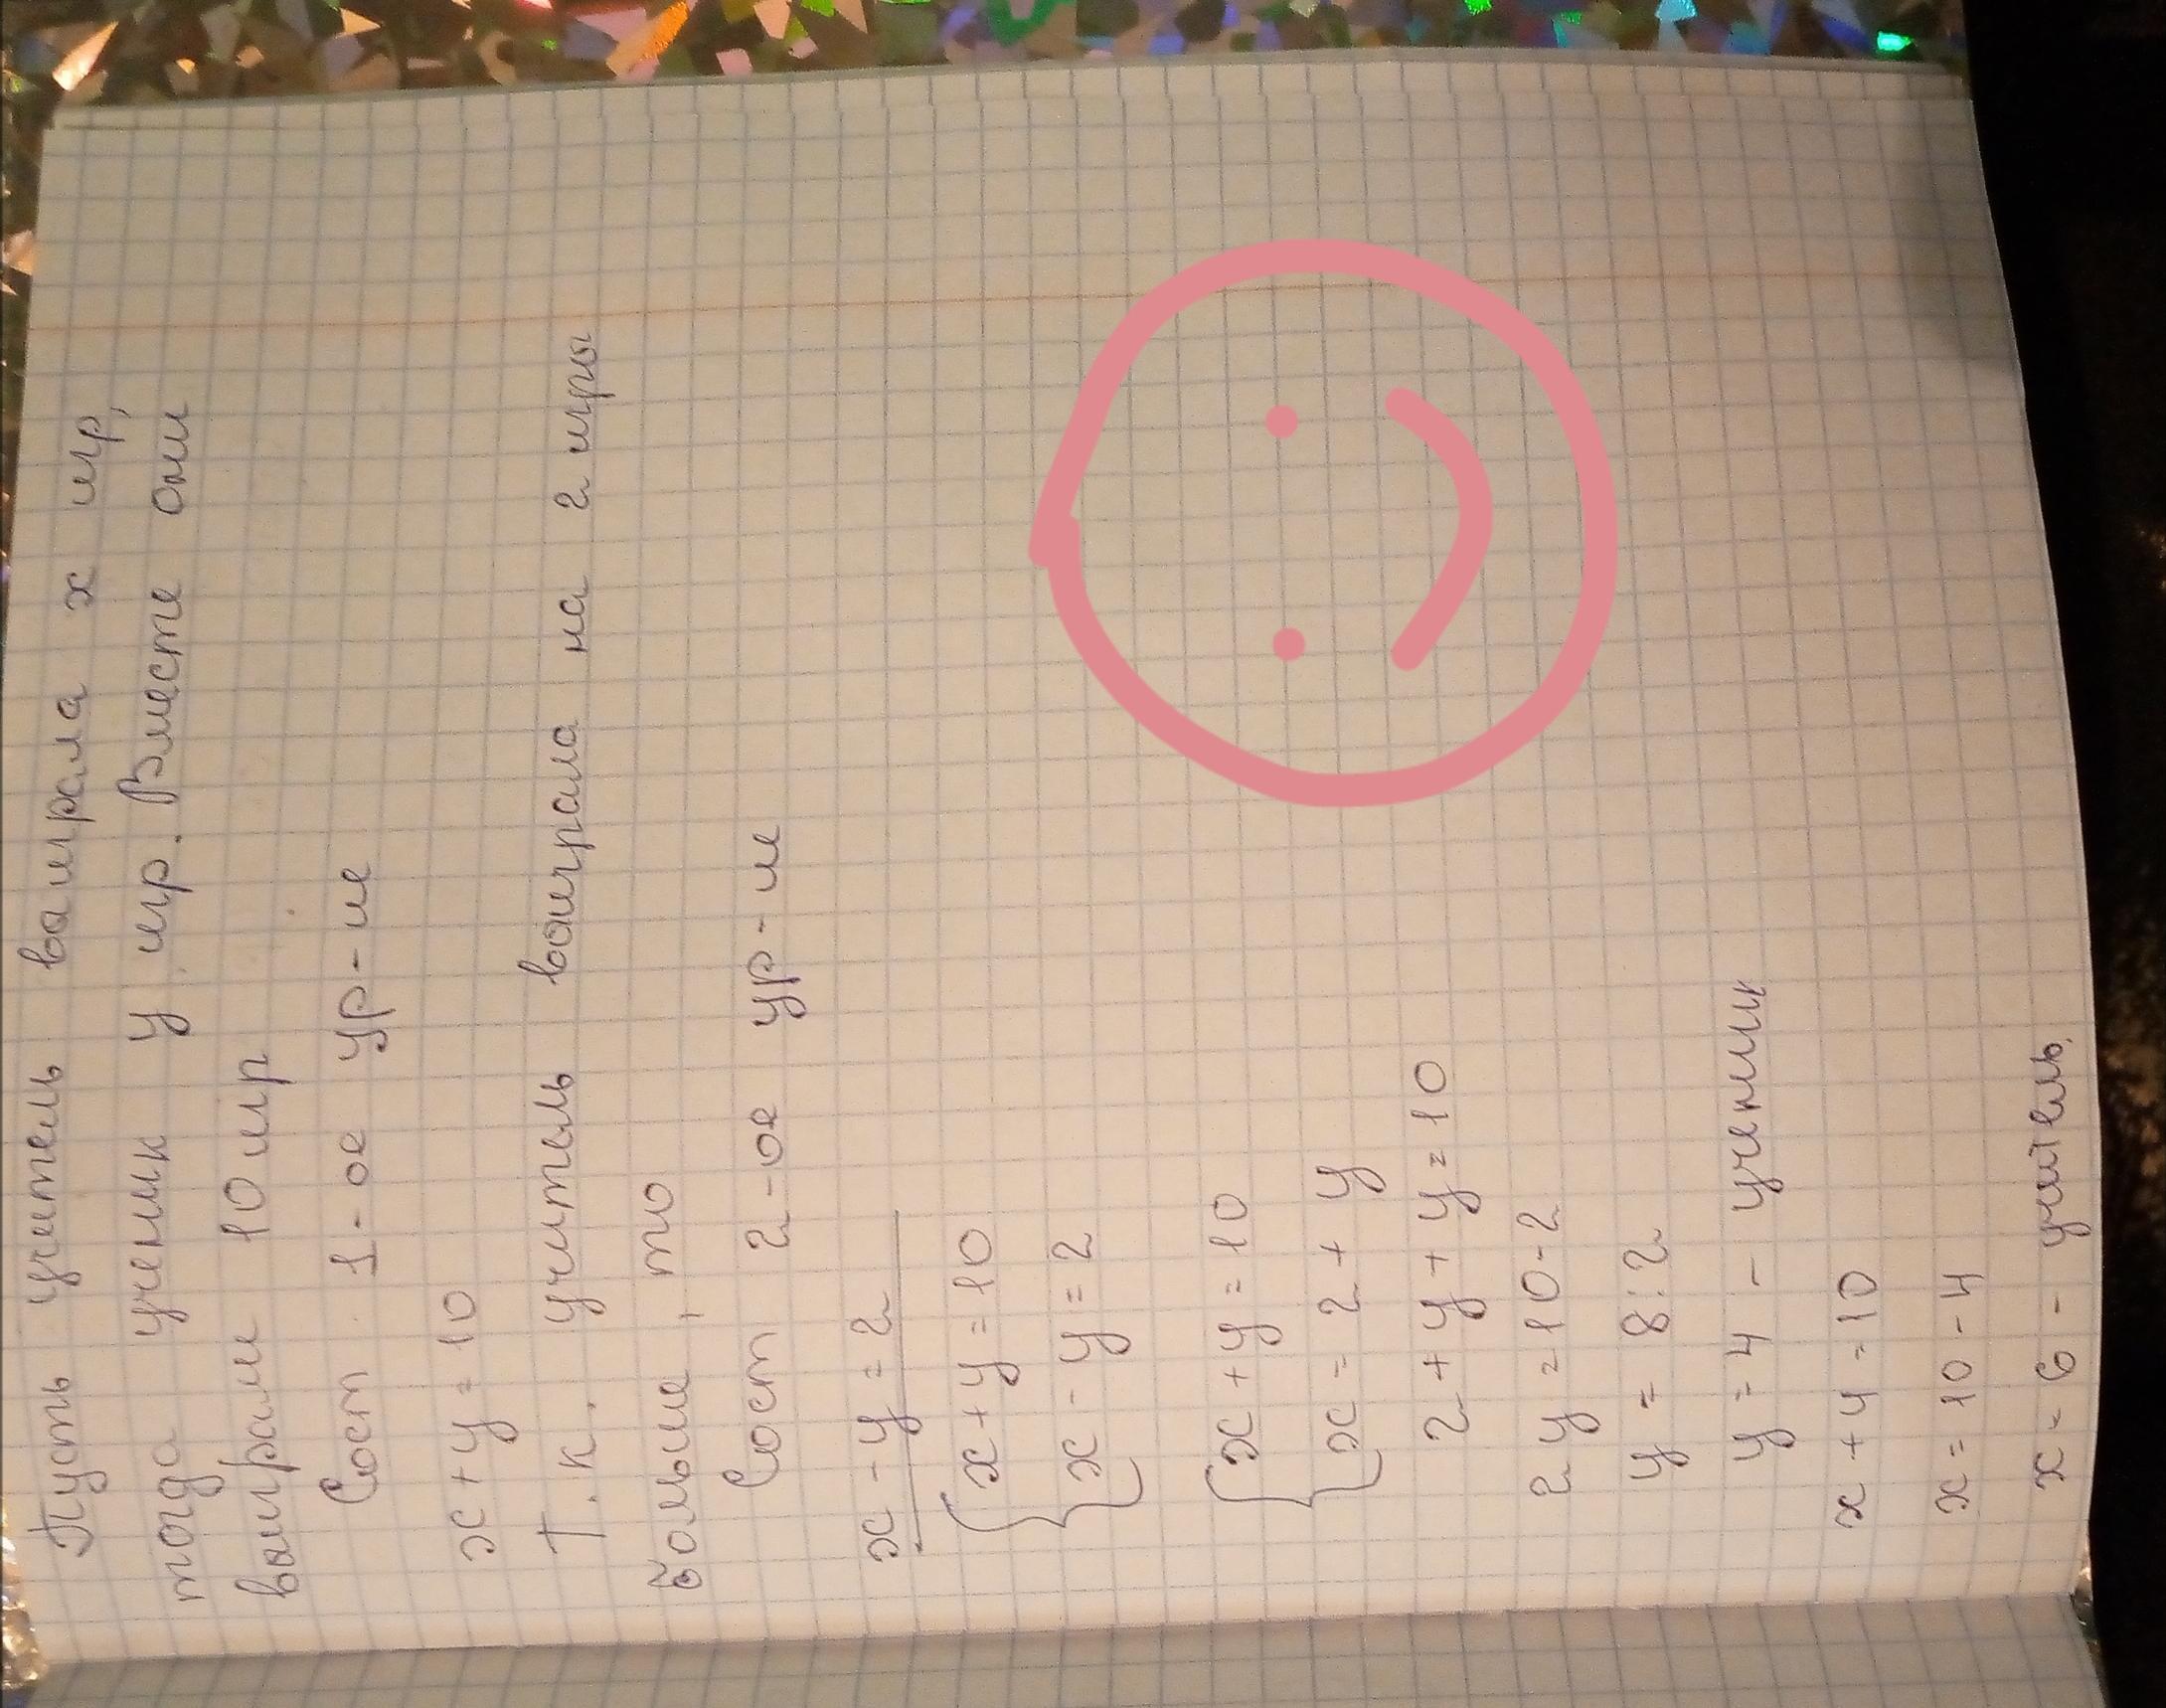 Пусть учитель выиграла x игр,
тогда ученик y игр. Вместе они
выиграли 10 игр
Сост 1-ое ур-ие
x + y = 10
Т.к. учитель выиграла на 2 игры
больше, то
Сост 2-ое ур-ие
x - y = 2
x + y = 10
x - y = 2
x + y = 10
x = 2 + y
2 + y + y = 10
2y = 10-2
y = 8:2
y = 4 - ученик
x + 4 = 10
x = 10 - 4
x = 6 - учитель.